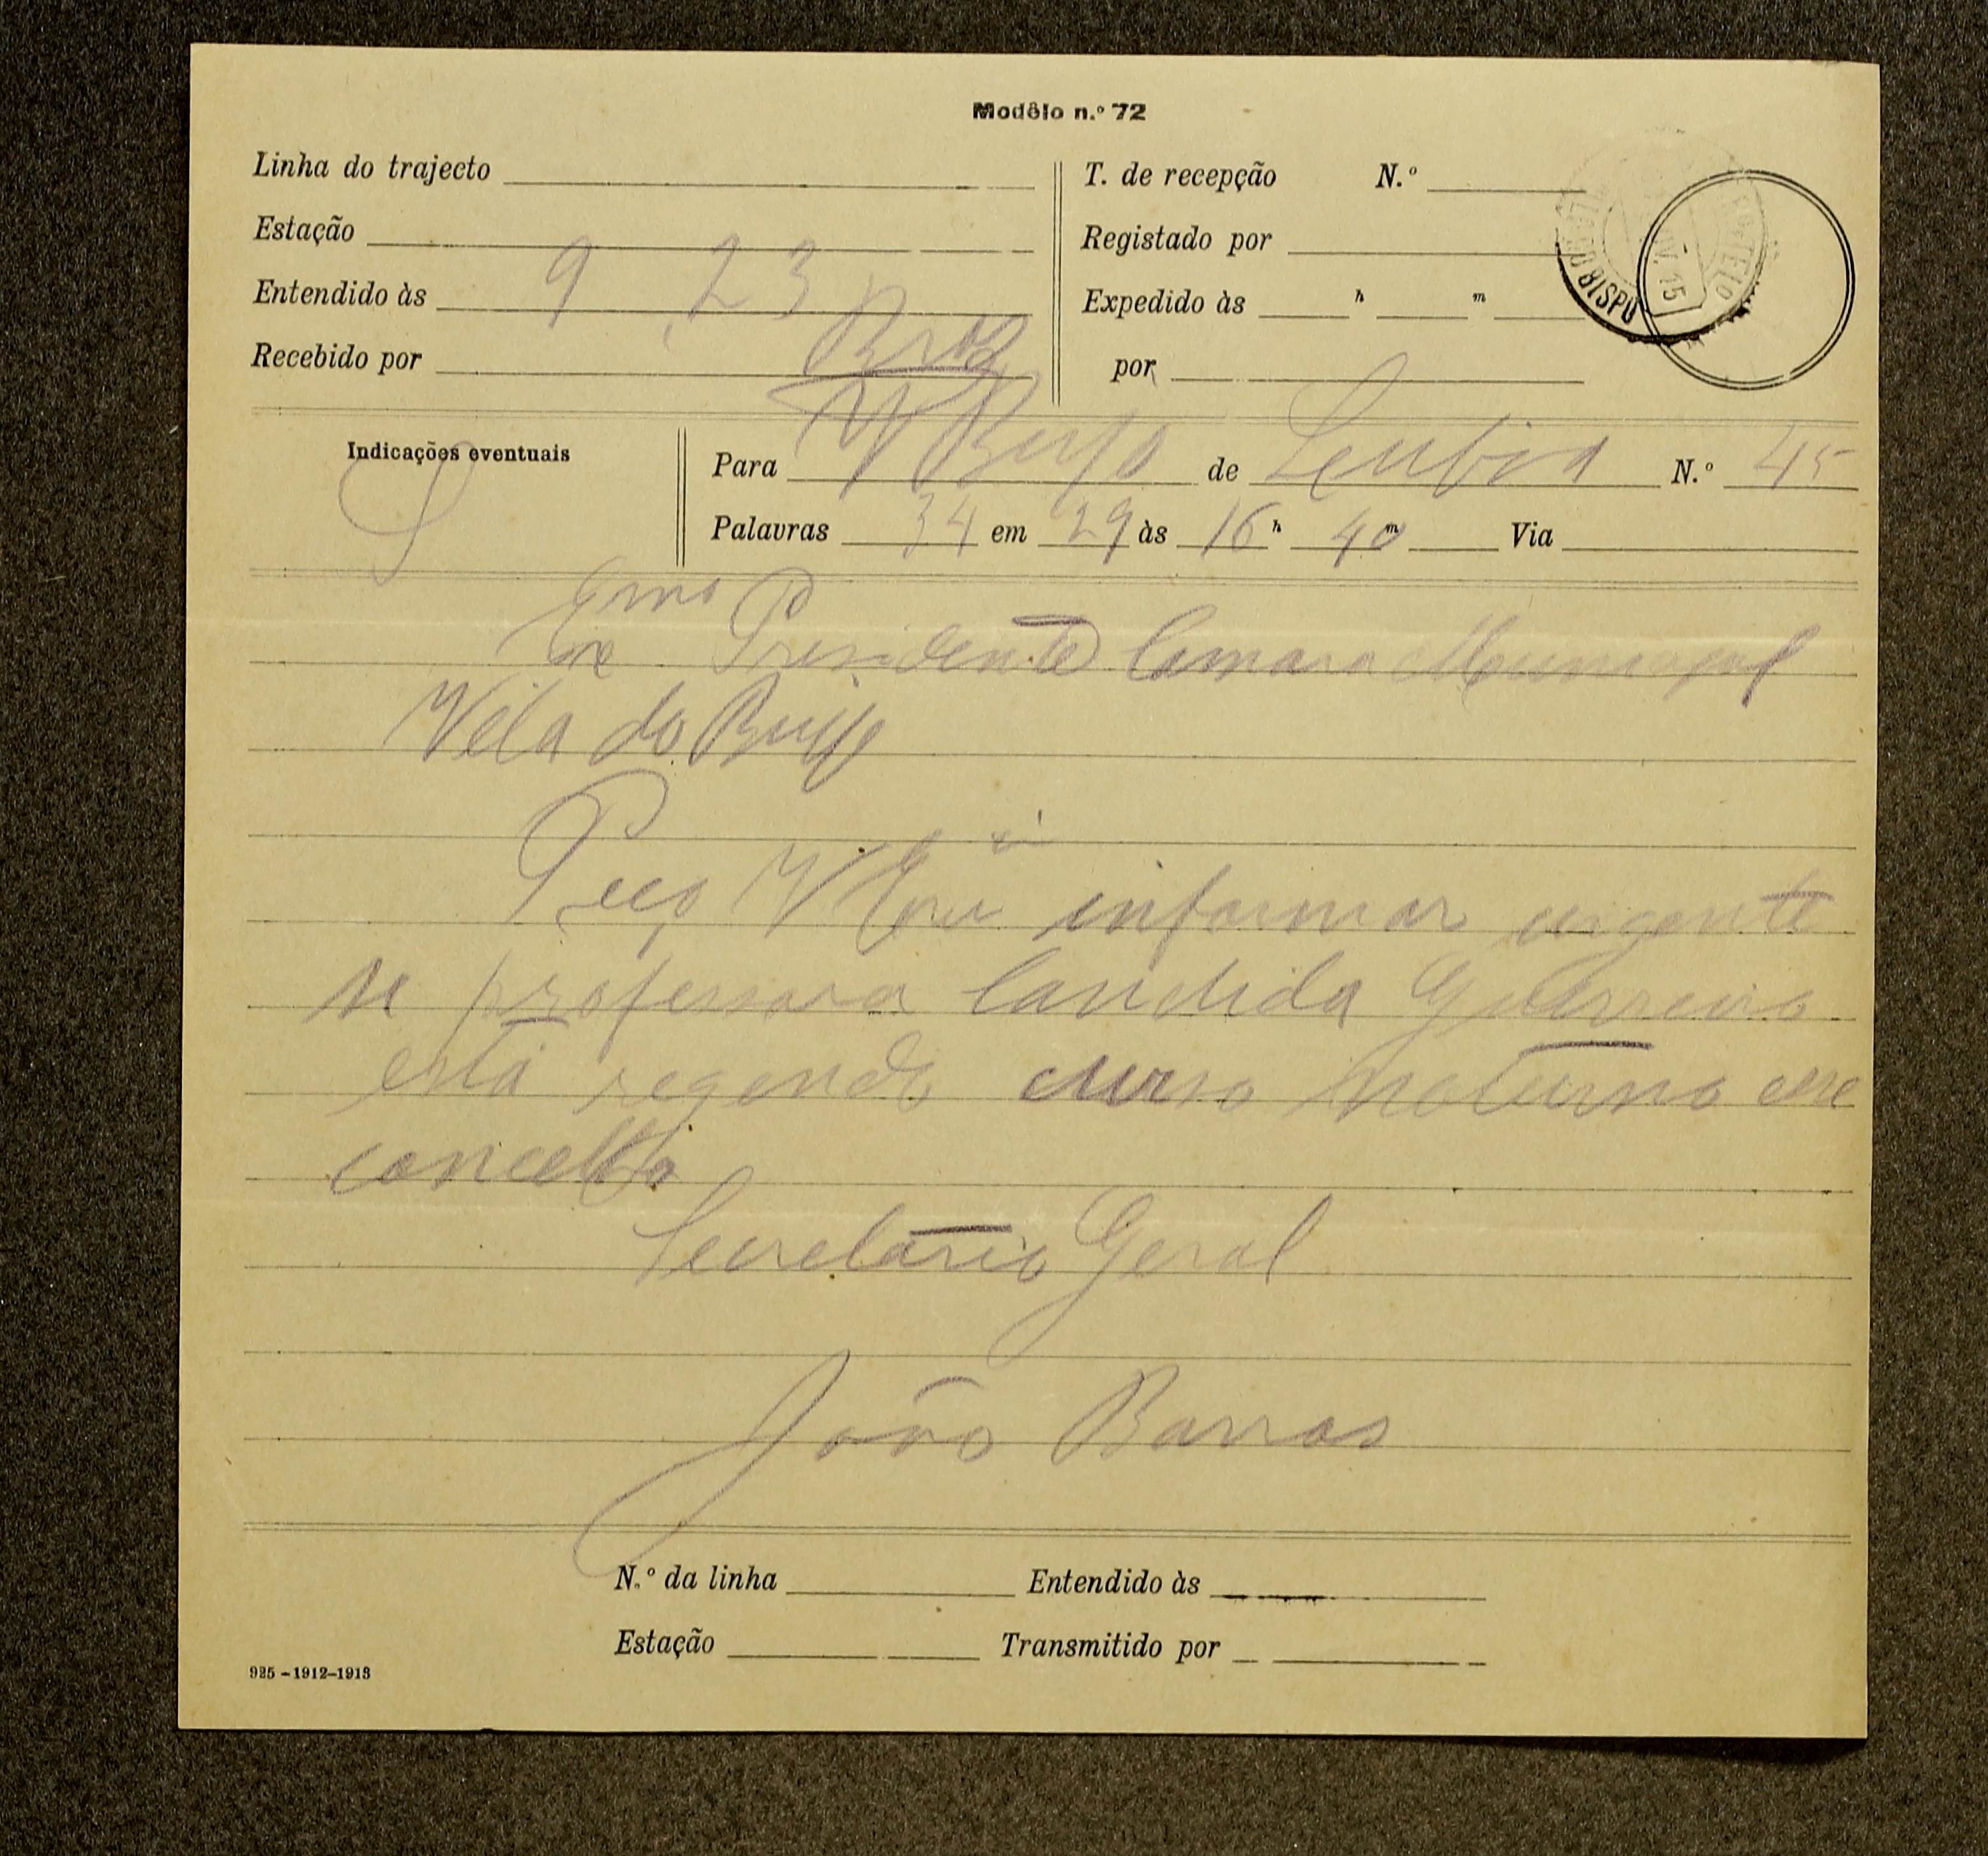 Modêlo n.º 72
Linha do trajecto
Estação
Entendido às 9 23
Recebido por Braz
T. de recepção N.º
Registado por
Expedido às h m
por
VILA DO BISPO
NOV. 15
Indicações eventuais
S
Para V Bispo de Lisboa N.º 45
Palavras 34 em 29 às 16 h 40 m Via
Exmo Presidente Camara Municipal
Vila do Bispo
Peço V Exa informar urgente
se professora Candida Guerreiro
está regendo curso noturno esse
concelho
Secretario Geral
João Barros
N.º da linha Entendido às
Estação Transmitido por
925 - 1912-1913